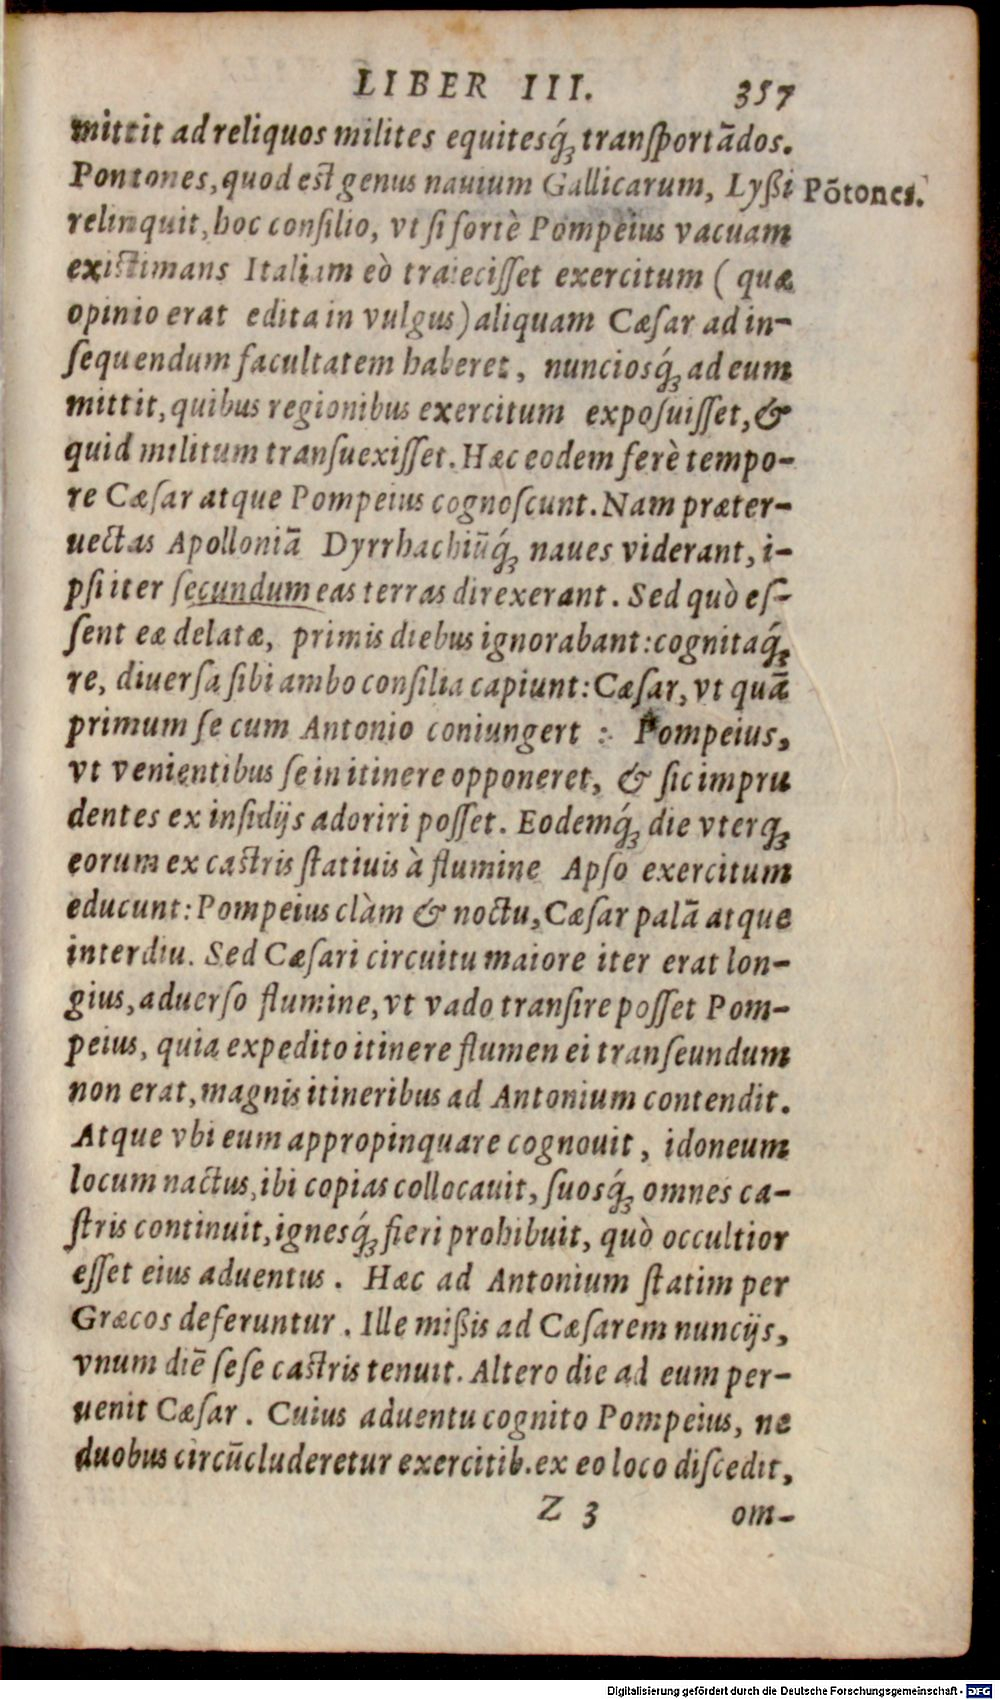 LIBER III. 357
mittit ad reliquos milites equitesq́; transportādos.
Pontones, quod est genus nauium Gallicarum, Lyßi
Pōtones.
relinquit, hoc consilio, vt si fortè Pompeius vacuam
existimans Italiam eò traiecisset exercitum ( quæ
opinio erat edita in vulgus) aliquam Cæsar ad in-
sequendum facultatem haberet, nunciosq́; ad eum
mittit, quibus regionibus exercitum exposuisset, &
quid militum transuexisset. Hæc eodem ferè tempo-
re Cæsar atque Pompeius cognoscunt. Nam præter-
uectas Apolloniā Dyrrhachiūq́; naues viderant, i-
psi iter secundum eas terras direxerant. Sed quò es-
sent eæ delatæ, primis diebus ignorabant: cognitaq́;
re, diuersa sibi ambo consilia capiunt: Cæsar, vt quā
primum se cum Antonio coniungert : Pompeius,
vt venientibus se in itinere opponeret, & sic impru
dentes ex insidijs adoriri posset. Eodemq́; die vterq;
eorum ex castris statiuis à flumine Apso exercitum
educunt: Pompeius clàm & noctu, Cæsar palā atque
interdiu. Sed Cæsari circuitu maiore iter erat lon-
gius, aduerso flumine, vt vado transire posset Pom-
peius, quia expedito itinere flumen ei transeundum
non erat, magnis itineribus ad Antonium contendit.
Atque vbi eum appropinquare cognouit, idoneum
locum nactus, ibi copias collocauit, suosq́; omnes ca-
stris continuit, ignesq́; fieri prohibuit, quò occultior
esset eius aduentus. Hæc ad Antonium statim per
Græcos deferuntur. Ille mißis ad Cæsarem nuncijs,
vnum diē sese castris tenuit. Altero die ad eum per-
uenit Cæsar. Cuius aduentu cognito Pompeius, ne
duobus circūcluderetur exercitib. ex eo loco discedit,
Z 3 om-
Digitalisierung gefördert durch die Deutsche Forschungsgemeinschaft - DFG